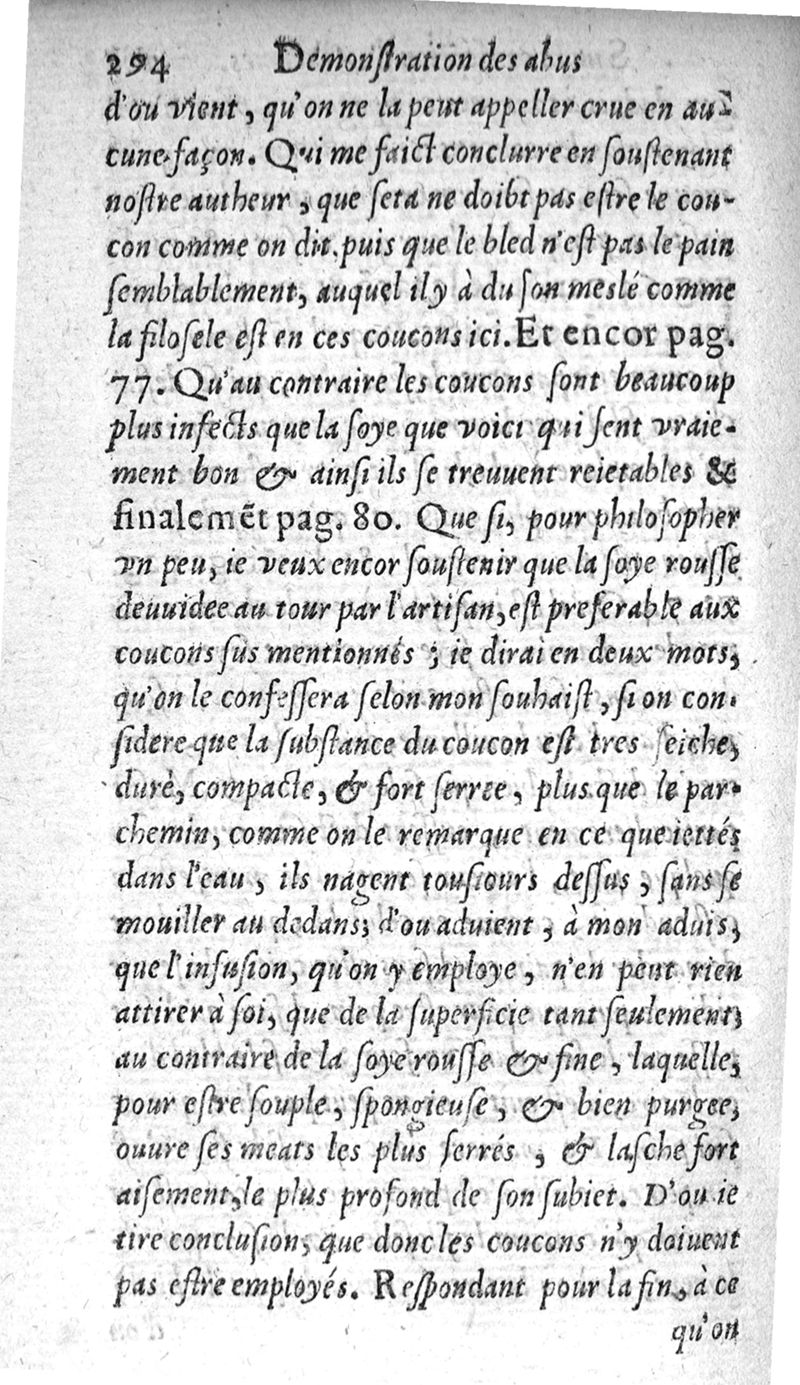 294 Demonſtration des abus
d'ou vient, qu'on ne la peut appeller crue en au-
cune façon. Qui me faict conclurre en ſouſtenant
noſtre autheur, que ſeta ne doibt pas eſtre le cou-
con comme on dit, puis que le bled n'eſt pas le pain
ſemblablement, auquel il y à du ſon meslé comme
la filoſele eſt en ces coucons ici. Et encor pag.
77. Qu'au contraire les coucons ſont beaucoup
plus infects que la ſoye que voici qui ſent vraie-
ment bon & ainſi ils ſe treuuent reietables &
finalemẽt pag. 80. Que ſi, pour philoſopher
vn peu, ie veux encor ſouſtenir que la ſoye rouſſe
deuuidee au tour par l'artiſan, eſt preferable aux
coucons ſus mentionnés ; ie dirai en deux mots,
qu'on le confeſſera ſelon mon ſouhaiſt, ſi on con-
ſidere que la ſubſtance du coucon eſt tres ſeiche,
dure, compacte, & fort ſerree, plus que le par-
chemin, comme on le remarque en ce que iettés
dans l'eau, ils nagent touſiours deſſus, ſans ſe
mouiller au dedans; d'ou aduient, à mon aduis,
que l'infuſion, qu'on y employe, n'en peut rien
attirer à ſoi, que de la ſuperficie tant ſeulement;
au contraire de la ſoye rouſſe & fine, laquelle,
pour eſtre ſouple, ſpongieuſe, & bien purgee,
ouure ſes meats les plus ſerrés, & laſche fort
aiſement, le plus profond de ſon ſubiet. D'ou ie
tire concluſion, que donc les coucons n'y doiuent
pas eſtre employés. Reſpondant pour la fin, à ce
qu'on